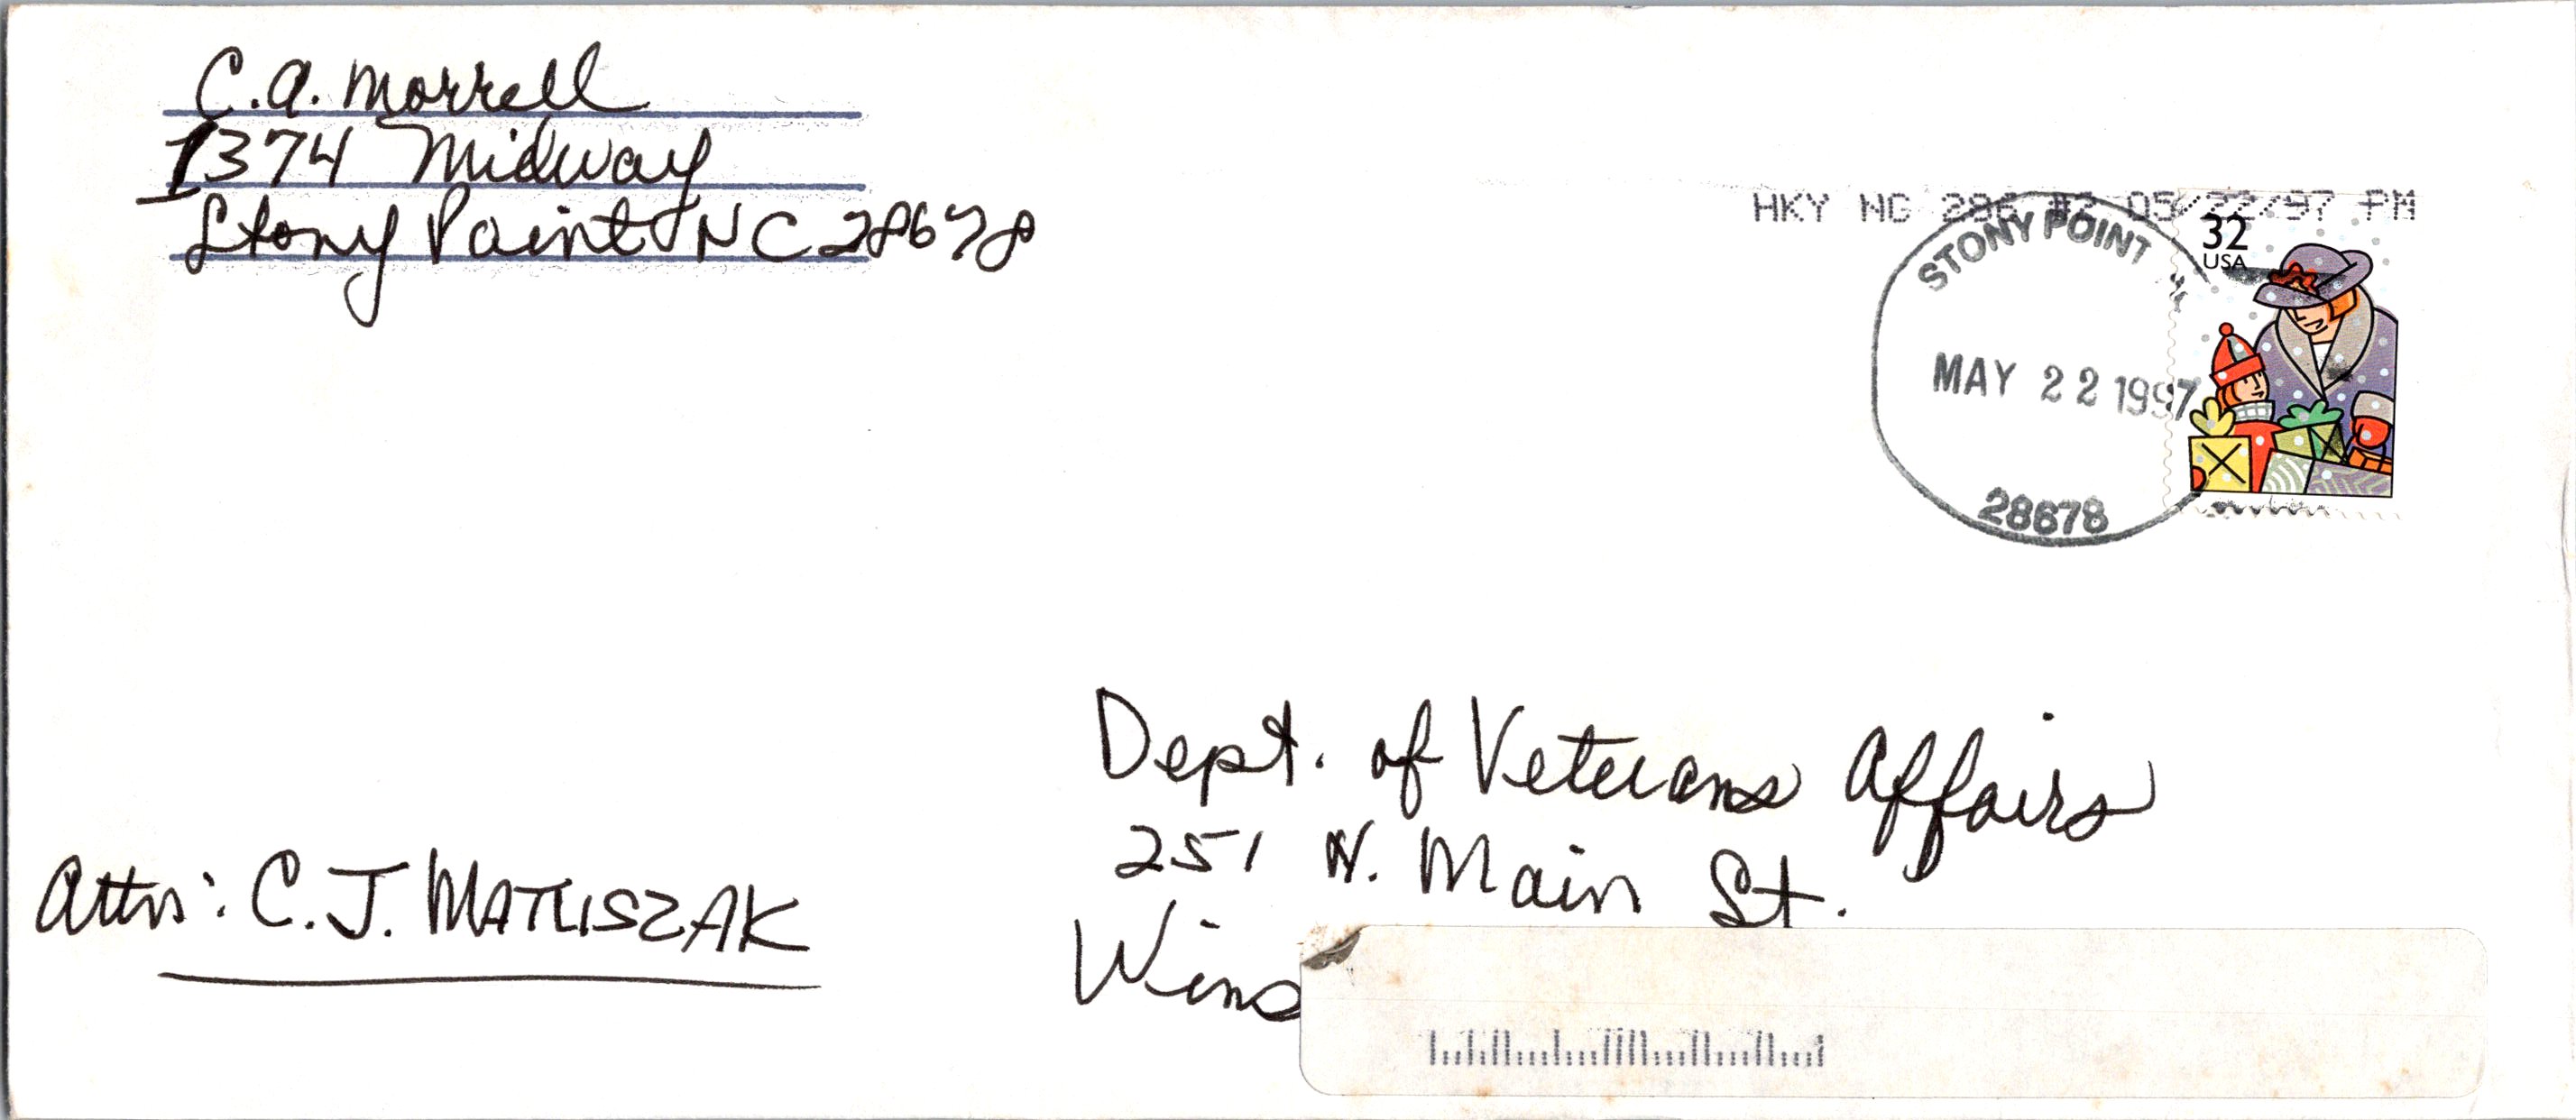 C.A. Morrell
1374 Midway
Stony Point NC 28678
HKY NC 286 #2 05/22/97 PM
STONY POINT
MAY 22 1997
28678
32
USA
Dept. of Veterans Affairs
251 N. Main St.
Wins
Attn: C.J. MATUSZAK